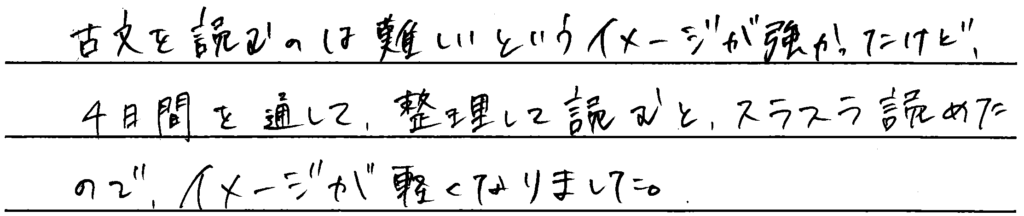 古文を読むのは難しいというイメージが強かったけど、
4日間を通して、整理して読むと、スラスラ読めた
ので、イメージが軽くなりました。